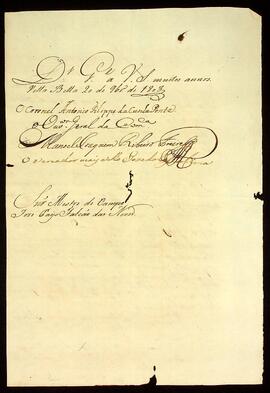 Ds. Gde. a V. S. muitos annos.
Villa Bella 20 de de 1803
O Coronel Antonio Felippe da Cunha Ponte
O Ouvor. Geral da
Manoel Joaquim Ribeiro Freire
O vereador mais velho
Snr. Mestre de Campo
Joze Paes Falcão das Neves